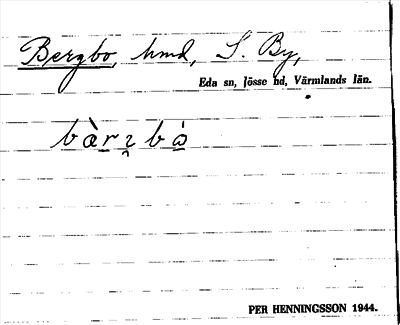 Bergbo, hmd, S. By,
Eda sn, Jösse hd, Värmlands län.
bàrʒbó̱
PER HENNINGSSON 1944.